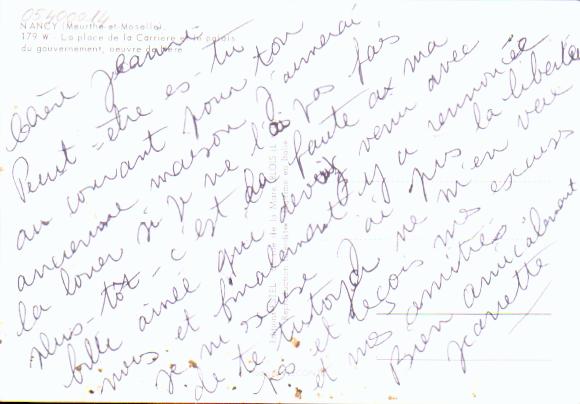 05400014
NANCY (Meurthe-et-Moselle)
179 W La place de la Carrière et le palais
du gouvernement, oeuvre de Héré
Chère Jeannine
Peut-être es-tu
au courant pour ton
ancienne maison, j'aimerai
la louer si je ne l'ai pas fais
plus-tôt - c'est la faute ax ma
belle ainée qui devais venir avec
nous et finalement y a rennoncée
je m'excuse j'ai pris la liberté
de te tutoyer ne m'en veux
pas et reçois mes excuses
et mes amitiés
Bien amicalement
Jeannette